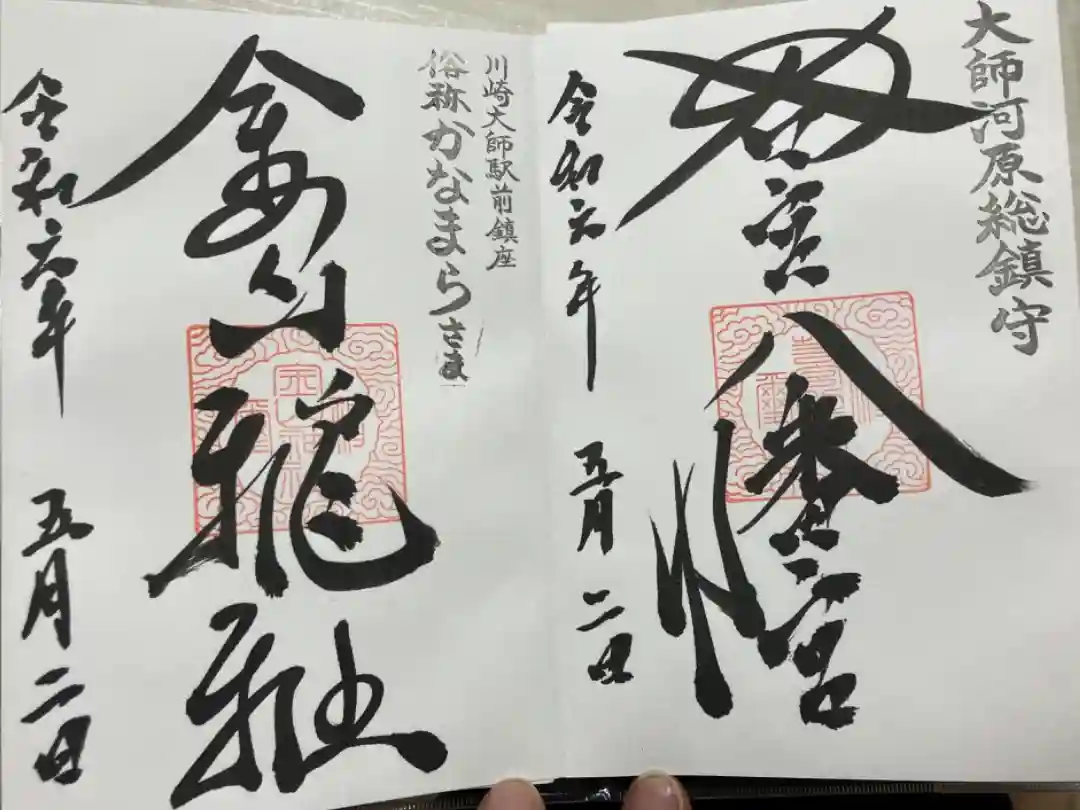 大師河原総鎮守
若宮八幡宮
令和六年 五月二日
川崎大師駅前鎮座
俗称かなまらさま
金山神社
令和六年 五月二日